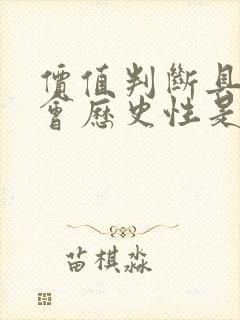 價值判斷具
會歷史性是
苗棋淼